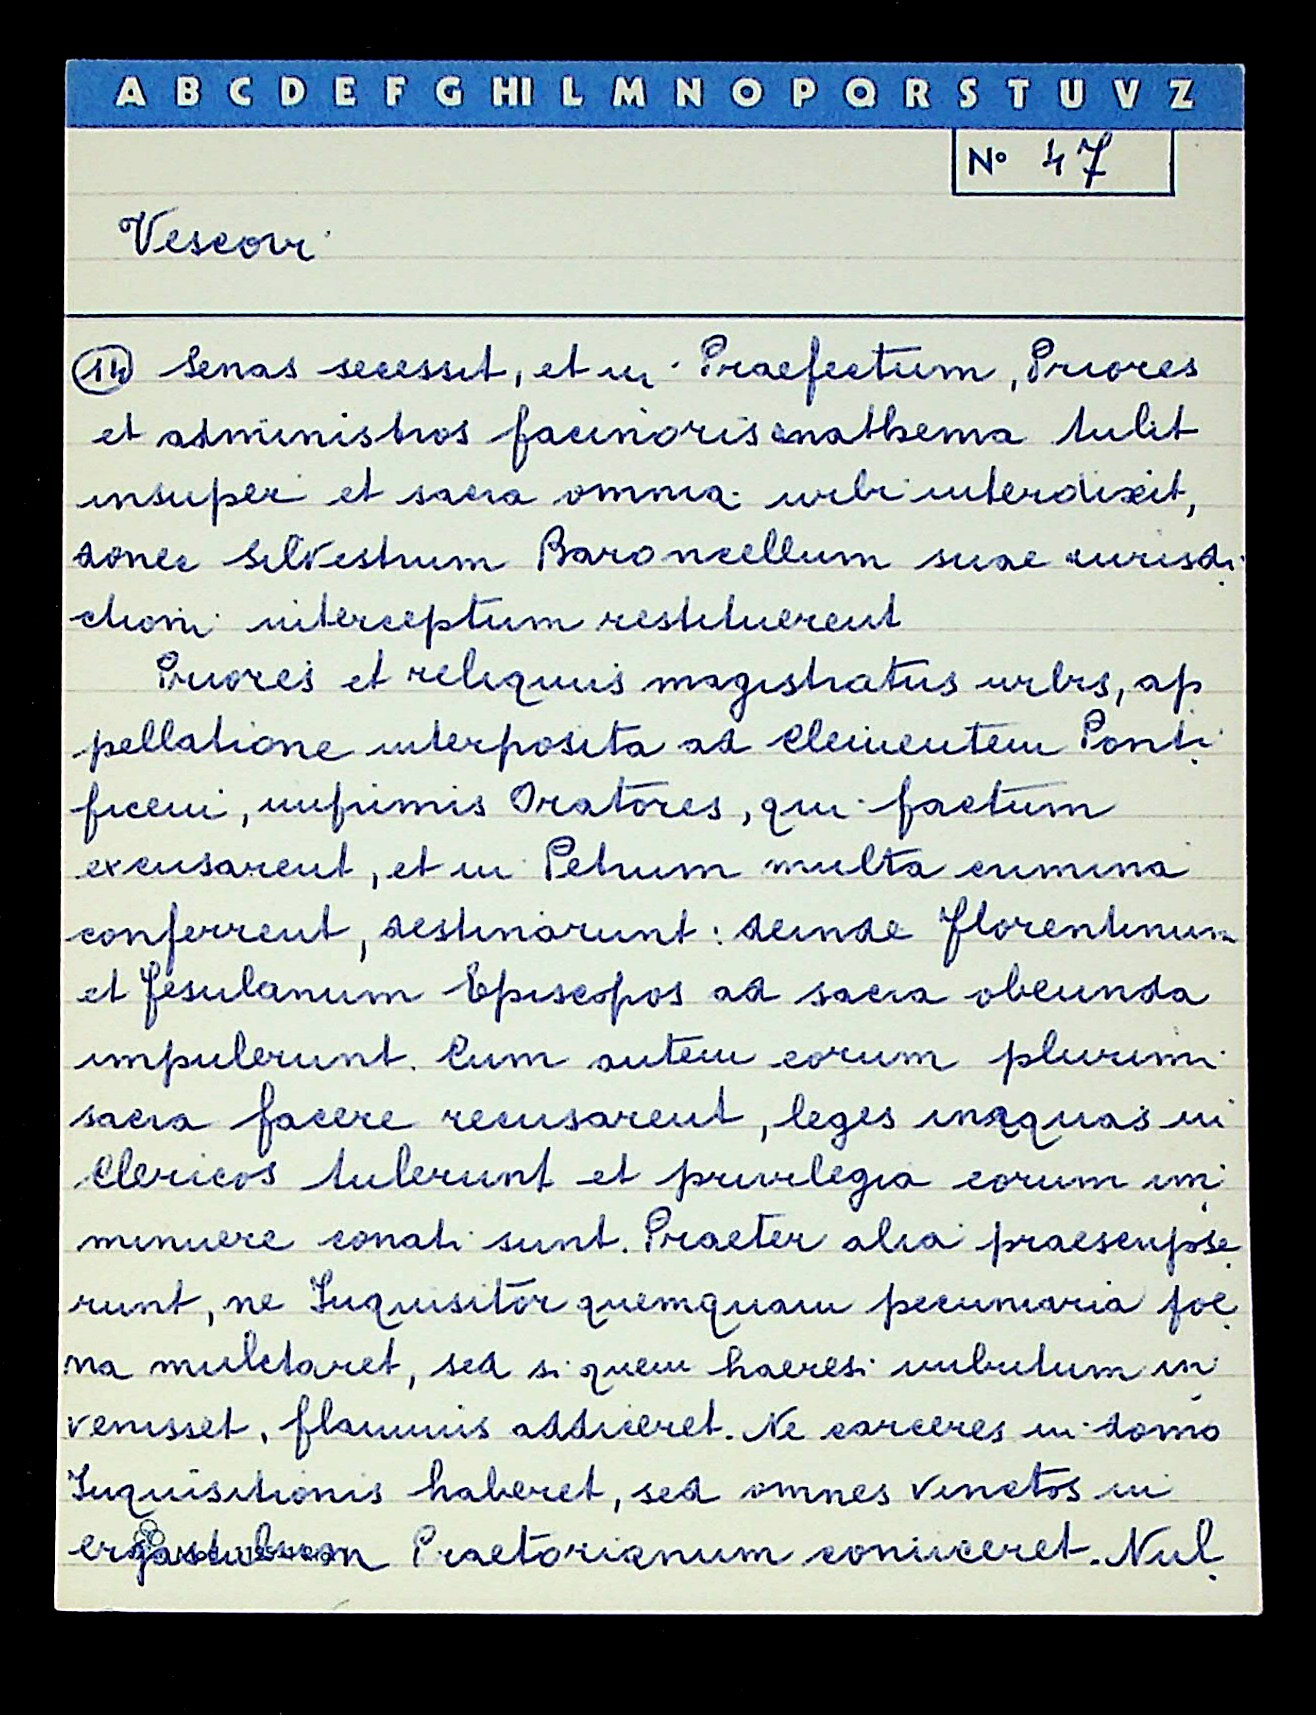 A B C D E F G HI L M N O P Q R S T U V Z
N° 47
Vescovi
14 Senas secessit, et in Praefectum, Priores
et administros facinoris anathema tulit
insuper et sacra omnia urbi interdixit,
donec Silvestrum Baroncellum suae iurisdi-
ctioni interceptum restituerent
Priores et reliquis magistratus urbis, ap
pellatione interposita ad Clementem Ponti-
ficem, imprimis Oratores, qui factum
excusarent, et in Petrum multa crimina
conferrent, destinarunt: deinde Florentinum
et Fesulanum Episcopos ad sacra obeunda
impulerunt. Cum autem eorum plurimi
sacra facere recusarent, leges iniquas in
Clericos tulerunt et privilegia eorum im-
minuere conati sunt. Praeter alia praescripse-
runt, ne Inquisitor quemquam pecuniaria poe-
na mulctaret, sed si quem haeresi imbutum in-
venisset, flammis addiceret. Ne carceres in domo
Inquisitionis haberet, sed omnes vinctos in
ergastulum Praetorianum coniiceret. Nul-